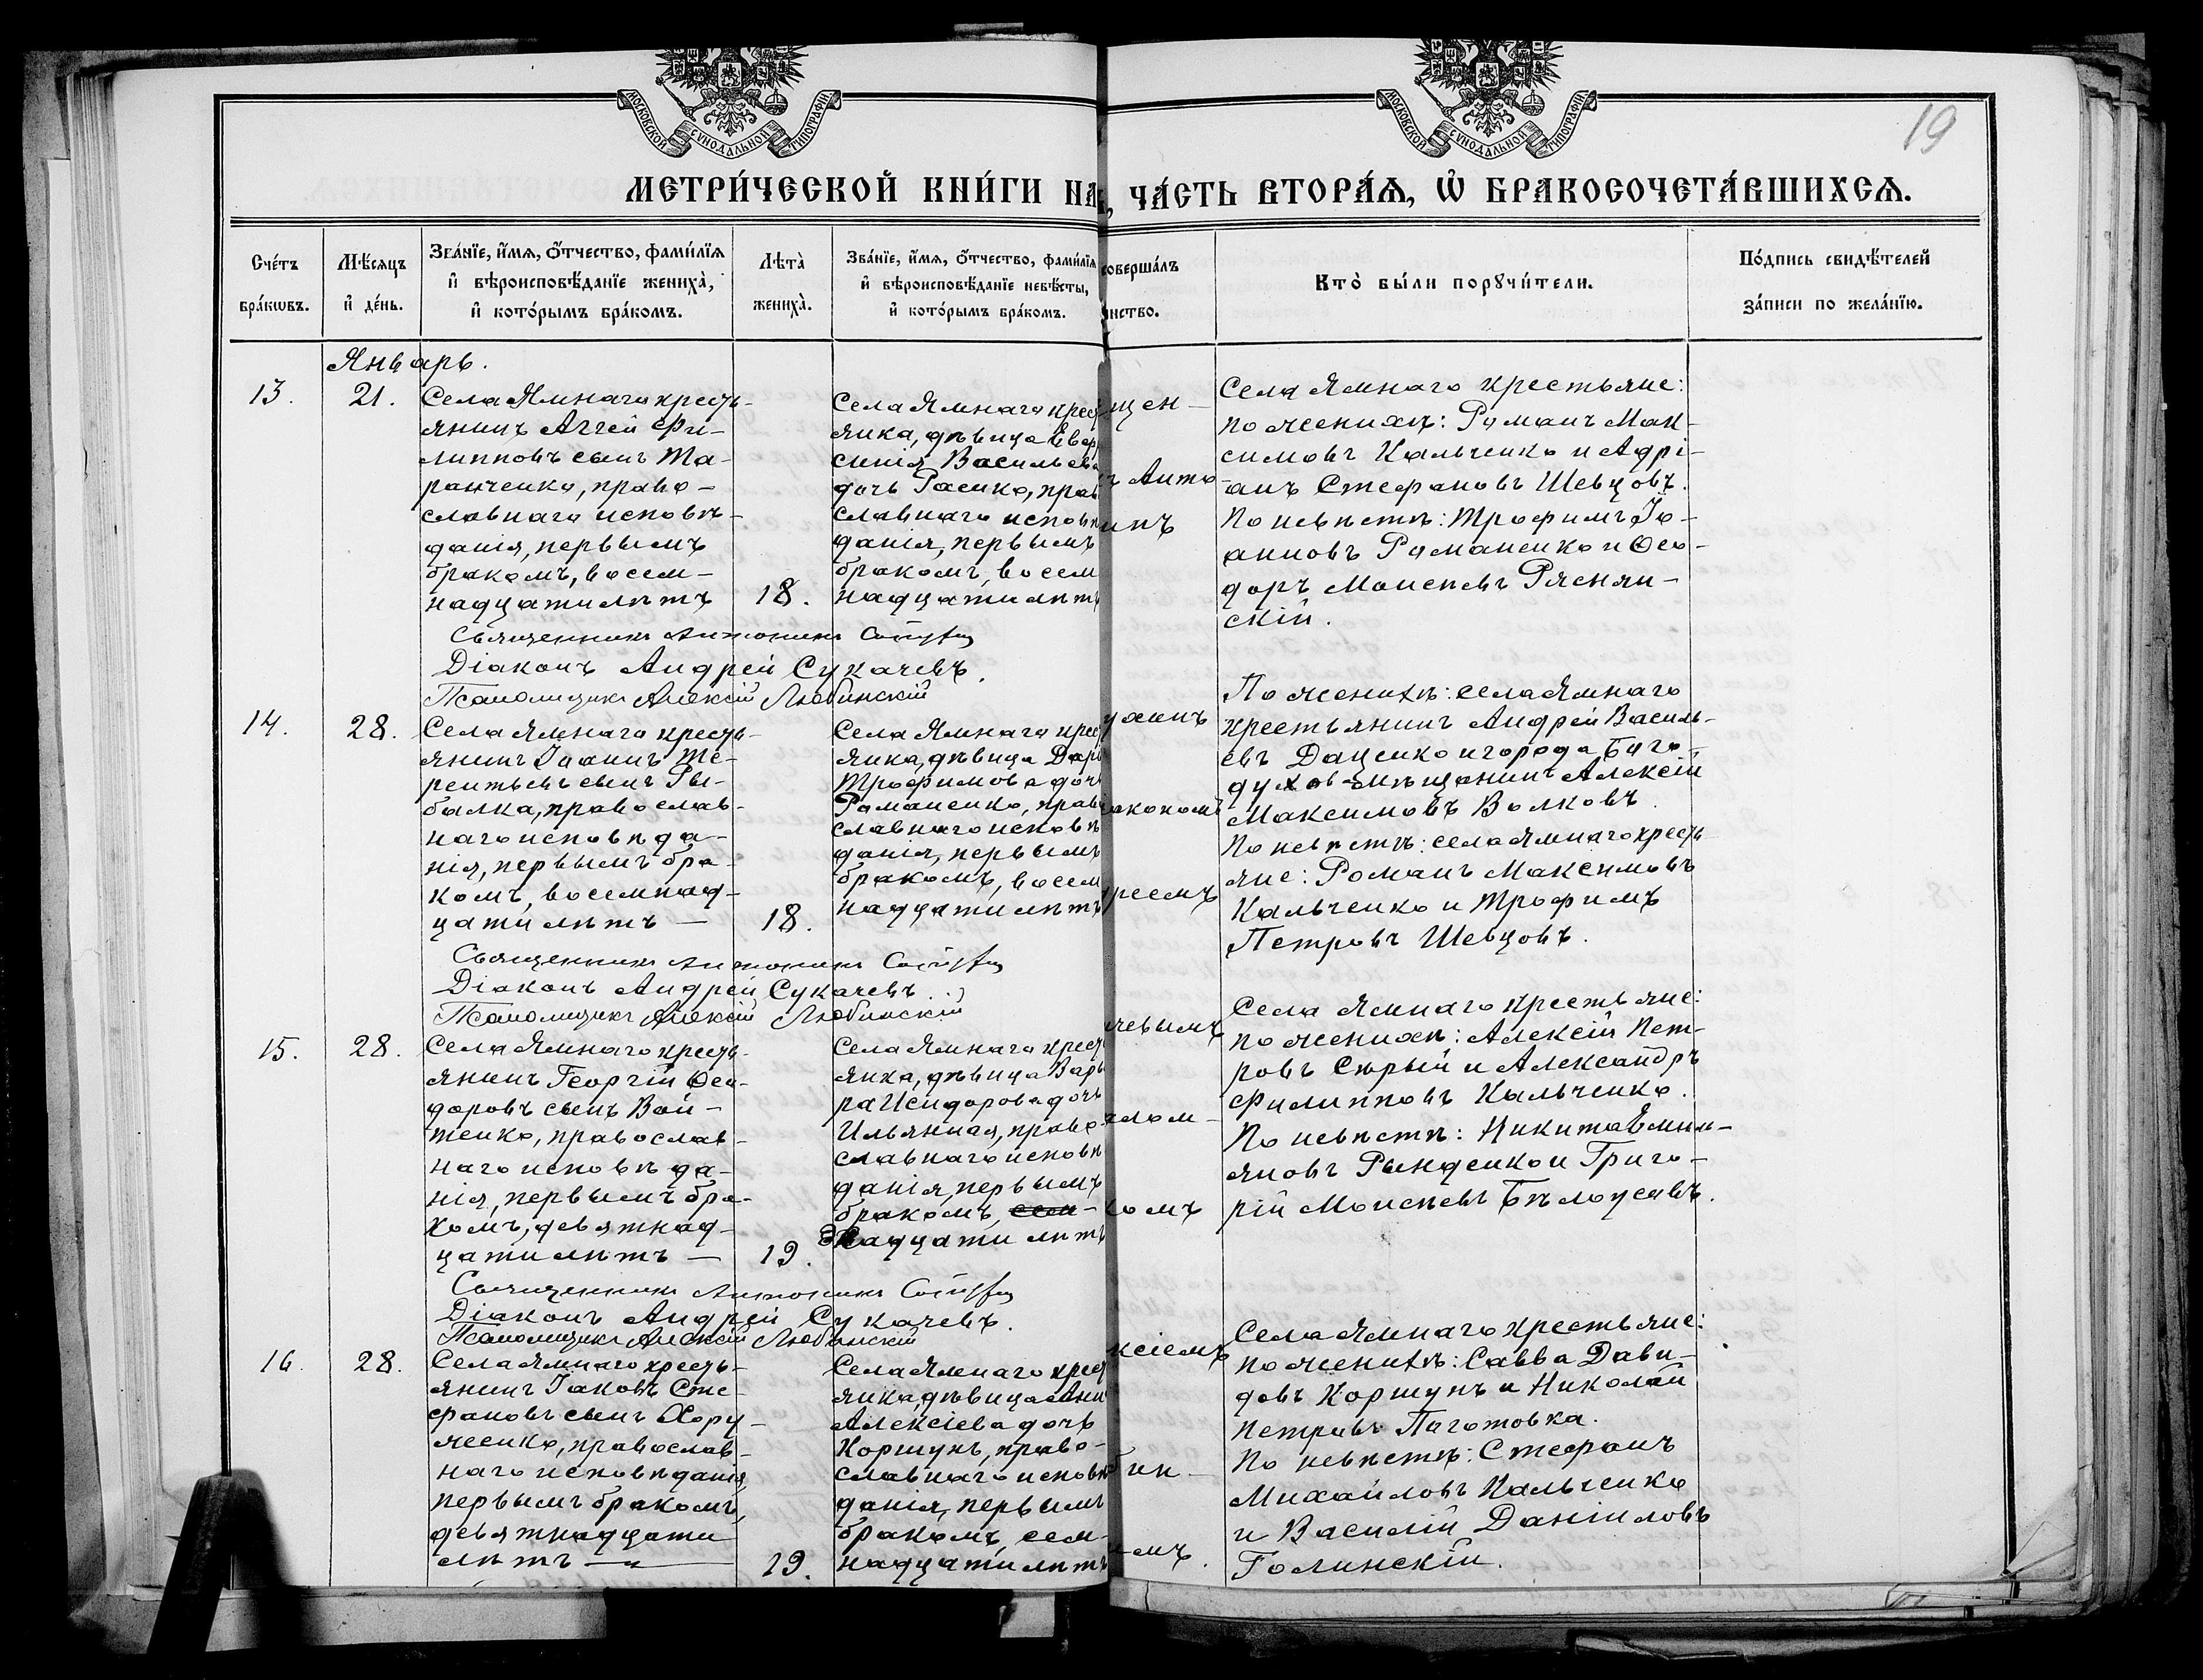 МОСКОВСКОЙ СѴНОДАЛЬНОЙ ТИПОГРАФІИ
МОСКОВСКОЙ СѴНОДАЛЬНОЙ ТИПОГРАФІИ
19
МЕТРИ́ЧЕСКОЙ КНИ́ГИ НА
ЧА́СТЬ ВТОРА́Ѧ, Ѽ БРАКОСОЧЕТА́ВШИХСѦ.
Сче́тъ
бра́кѡвъ.
Мѣ́сяцъ
и҆ де́нь.
Зва́нїе, и҆́мя, ѻ҆́тчество, фами́лїя
и҆ вѣроисповѣ́данїе жениха̀,
и҆ кото́рымъ бра́комъ.
Лѣта̀
жениха̀.
Зва́нїе, и҆́мя, ѻ҆́тчество, фами́лїя
и҆ вѣроисповѣ́данїе невѣ́сты,
и҆ кото́рымъ бра́комъ.
соверша́лъ
нство.
Кто̀ бы́ли порꙋчи́тели.
По́дпись свидѣ́телей
за́писи по жела́нїю.
Январь.
13.
21.
Села Ямнаго кресть-
янинъ Аггей Фи-
липповъ сынъ Та-
ранченко, право-
славнаго исповѣ-
данія, первымъ
бракомъ, восем-
надцати лѣтъ
18.
Села Ямнаго крест
янка, дѣвица Евфр
синія Васильева
дочь Расенко, прав
славнаго исповѣ
данія, первымъ
бракомъ, восем
надцати лѣтъ
щен-
ъ Анто-
инъ
Села Ямнаго крестьяне:
по женихѣ: Романъ Мак-
симовъ Кальченко и Адрі-
анъ Стефановъ Шевцовъ.
По невѣстѣ: Трофимъ Іо-
анновъ Романенко и Ѳео-
доръ Моисеевъ Ряснян-
скій.
Священникъ Антонинъ
Діаконъ Андрей Сукачевъ.
Псаломщикъ Алексій Любинскій
14.
28.
Села Ямнаго кресть-
янинъ Іоаннъ Те-
рентьевъ сынъ Ры-
балка, православ-
наго исповѣда-
нія, первымъ бра-
комъ, восемнад-
цати лѣтъ —
18.
Села Ямнаго крест
янка, дѣвица Дарь
Трофимова дочь
Романенко, прав
славнаго исповѣ
данія, первымъ
бракомъ, восем
надцати лѣтъ
іакономъ
реемъ
По женихѣ: села Ямнаго
крестьянинъ Андрей Василь-
евъ Даценко и города Бого-
духов- мѣщанинъ Алексій
Максимовъ Волковъ.
По невѣстѣ: села Ямнаго кресть-
яне: Романъ Максимовъ
Кальченко и Трофимъ
Петровъ Шевцовъ.
Священникъ Антонинъ
Діаконъ Андрей Сукачевъ.
Псаломщикъ Алексій Любинскій
15.
28.
Села Ямнаго кресть-
янинъ Георгій Ѳео-
доровъ сынъ Вой-
тенко, православ-
наго исповѣда-
нія, первымъ бра-
комъ, девятнад-
цати лѣтъ —
19.
Села Ямнаго крест
янка, дѣвица Варв
ра Исидорова дочь
Ильянная, право
славнаго исповѣ
данія, первымъ
бракомъ, сем-
двадцати лѣтъ
чевымъ
алом-
комъ
Села Ямнаго крестьяне:
по женихѣ: Алексій Пет-
ровъ Сюрый и Александръ
Филипповъ Кальченко.
По невѣстѣ: Никита Емил-
яновъ Рынденко и Григо-
рій Моисеевъ Бѣлоусовъ.
Священникъ Антонинъ
Діаконъ Андрей Сукачевъ.
Псаломщикъ Алексій Любинскій
16.
28.
Села Ямнаго кресть-
янинъ Іаковъ Сте-
фановъ сынъ Хору-
женко, православ-
наго исповѣданія,
первымъ бракомъ,
девятнадцати
лѣтъ —
19.
Села Ямнаго крест
янка, дѣвица Анн
Алексіева дочь
Коршунъ, право-
славнаго исповѣ
данія, первымъ
бракомъ, сем-
надцати лѣтъ
ксіемъ
бин-
имъ.
Села Ямнаго крестьяне:
по женихѣ: Савва Дави-
довъ Коршунъ и Николай
Петровъ Паготовка.
По невѣстѣ: Стефанъ
Михайловъ Кальченко
и Василій Даніиловъ
Голинскій.